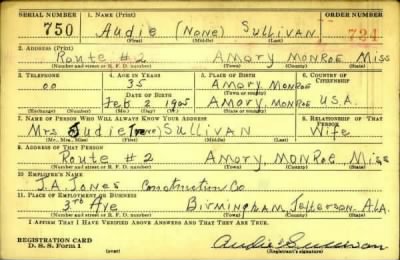 SERIAL NUMBER 1. NAME (Print) ORDER NUMBER
750 Audie (None) Sullivan 724
(First) (Middle) (Last)
2. ADDRESS (Print)
Route #2 Amory Monroe Miss
(Number and street or R. F. D. number) (Town) (County) (State)
3. TELEPHONE 4. AGE IN YEARS 5. PLACE OF BIRTH 6. COUNTRY OF CITIZENSHIP
00 35 Amory Monroe
DATE OF BIRTH (Town or county)
Feb 2 1905 Amory, Monroe U.S.A.
(Exchange) (Number) (Mo.) (Day) (Yr.) (State or country)
7. NAME OF PERSON WHO WILL ALWAYS KNOW YOUR ADDRESS 8. RELATIONSHIP OF THAT PERSON
Mrs Sudie Irene Sullivan Wife
(Mr., Mrs., Miss) (First) (Middle) (Last)
9. ADDRESS OF THAT PERSON
Route #2 Amory, Monroe Miss
(Number and street or R. F. D. number) (Town) (County) (State)
10. EMPLOYER'S NAME
J.A. Jones Construction Co
11. PLACE OF EMPLOYMENT OR BUSINESS
3rd Ave Birmingham Jefferson ALA.
(Number and street or R. F. D. number) (Town) (County) (State)
I AFFIRM THAT I HAVE VERIFIED ABOVE ANSWERS AND THAT THEY ARE TRUE.
REGISTRATION CARD
D. S. S. Form 1 Audie Sullivan
(Registrant's signature)